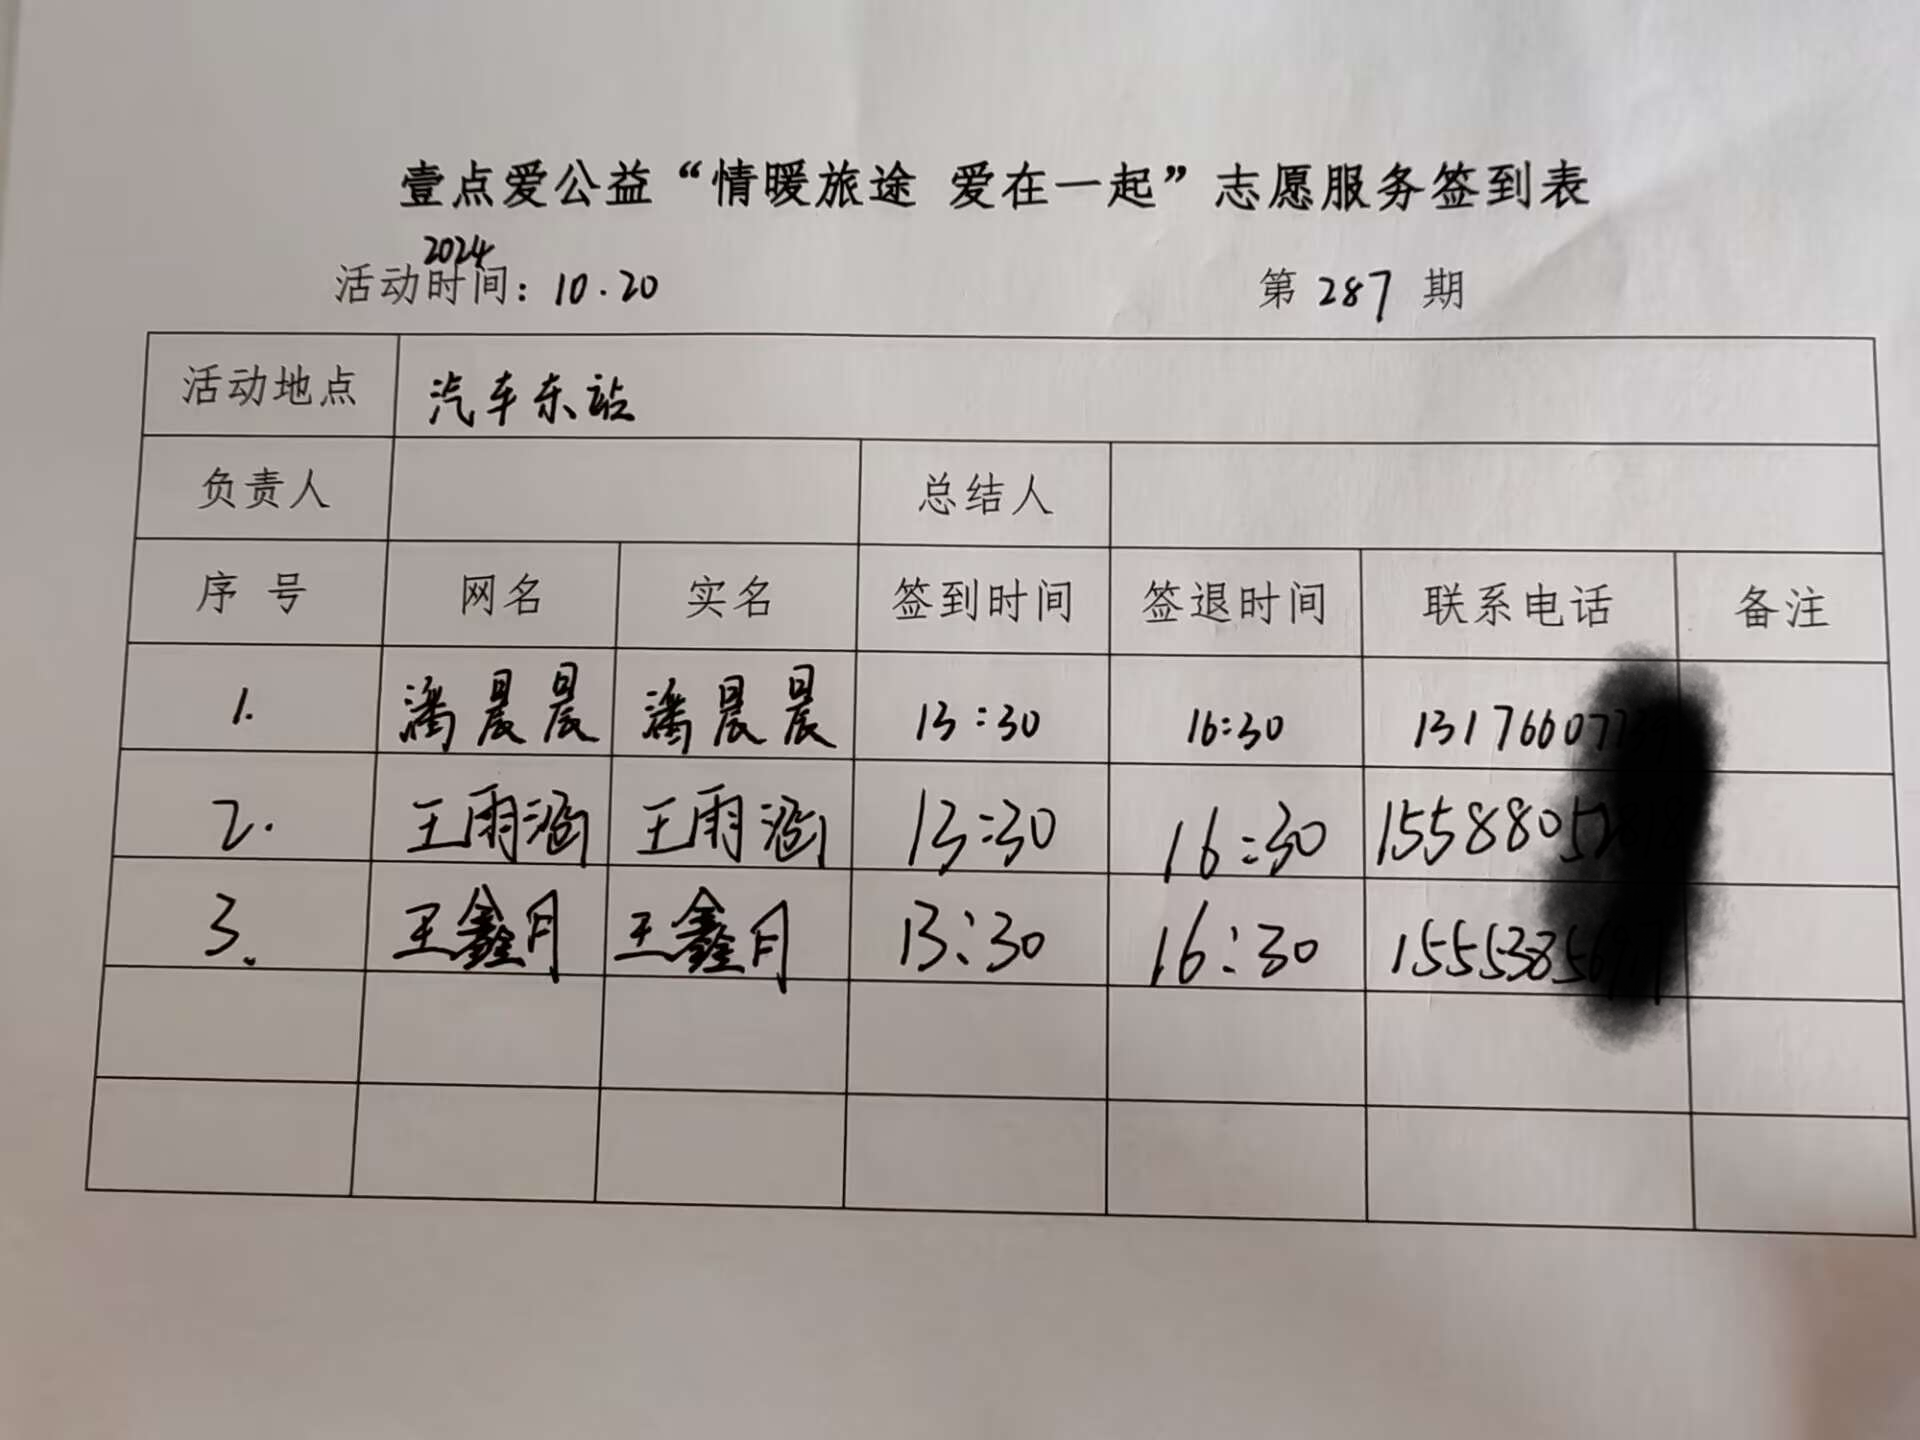 壹点爱公益“情暖旅途 爱在一起”志愿服务签到表
2024
活动时间：10.20 第 287 期
活动地点 汽车东站
负责人 总结人
序 号 网名 实名 签到时间 签退时间 联系电话 备注
1. 潘晨晨 潘晨晨 13:30 16:30 131766077
2. 王雨涵 王雨涵 13:30 16:30 15588052
3. 王鑫月 王鑫月 13:30 16:30 15553856